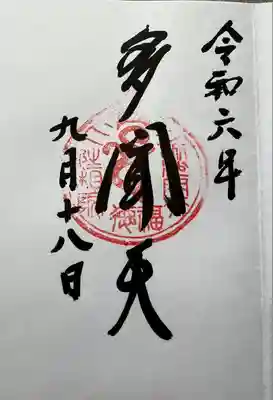 令和六年
多聞天
九月十八日